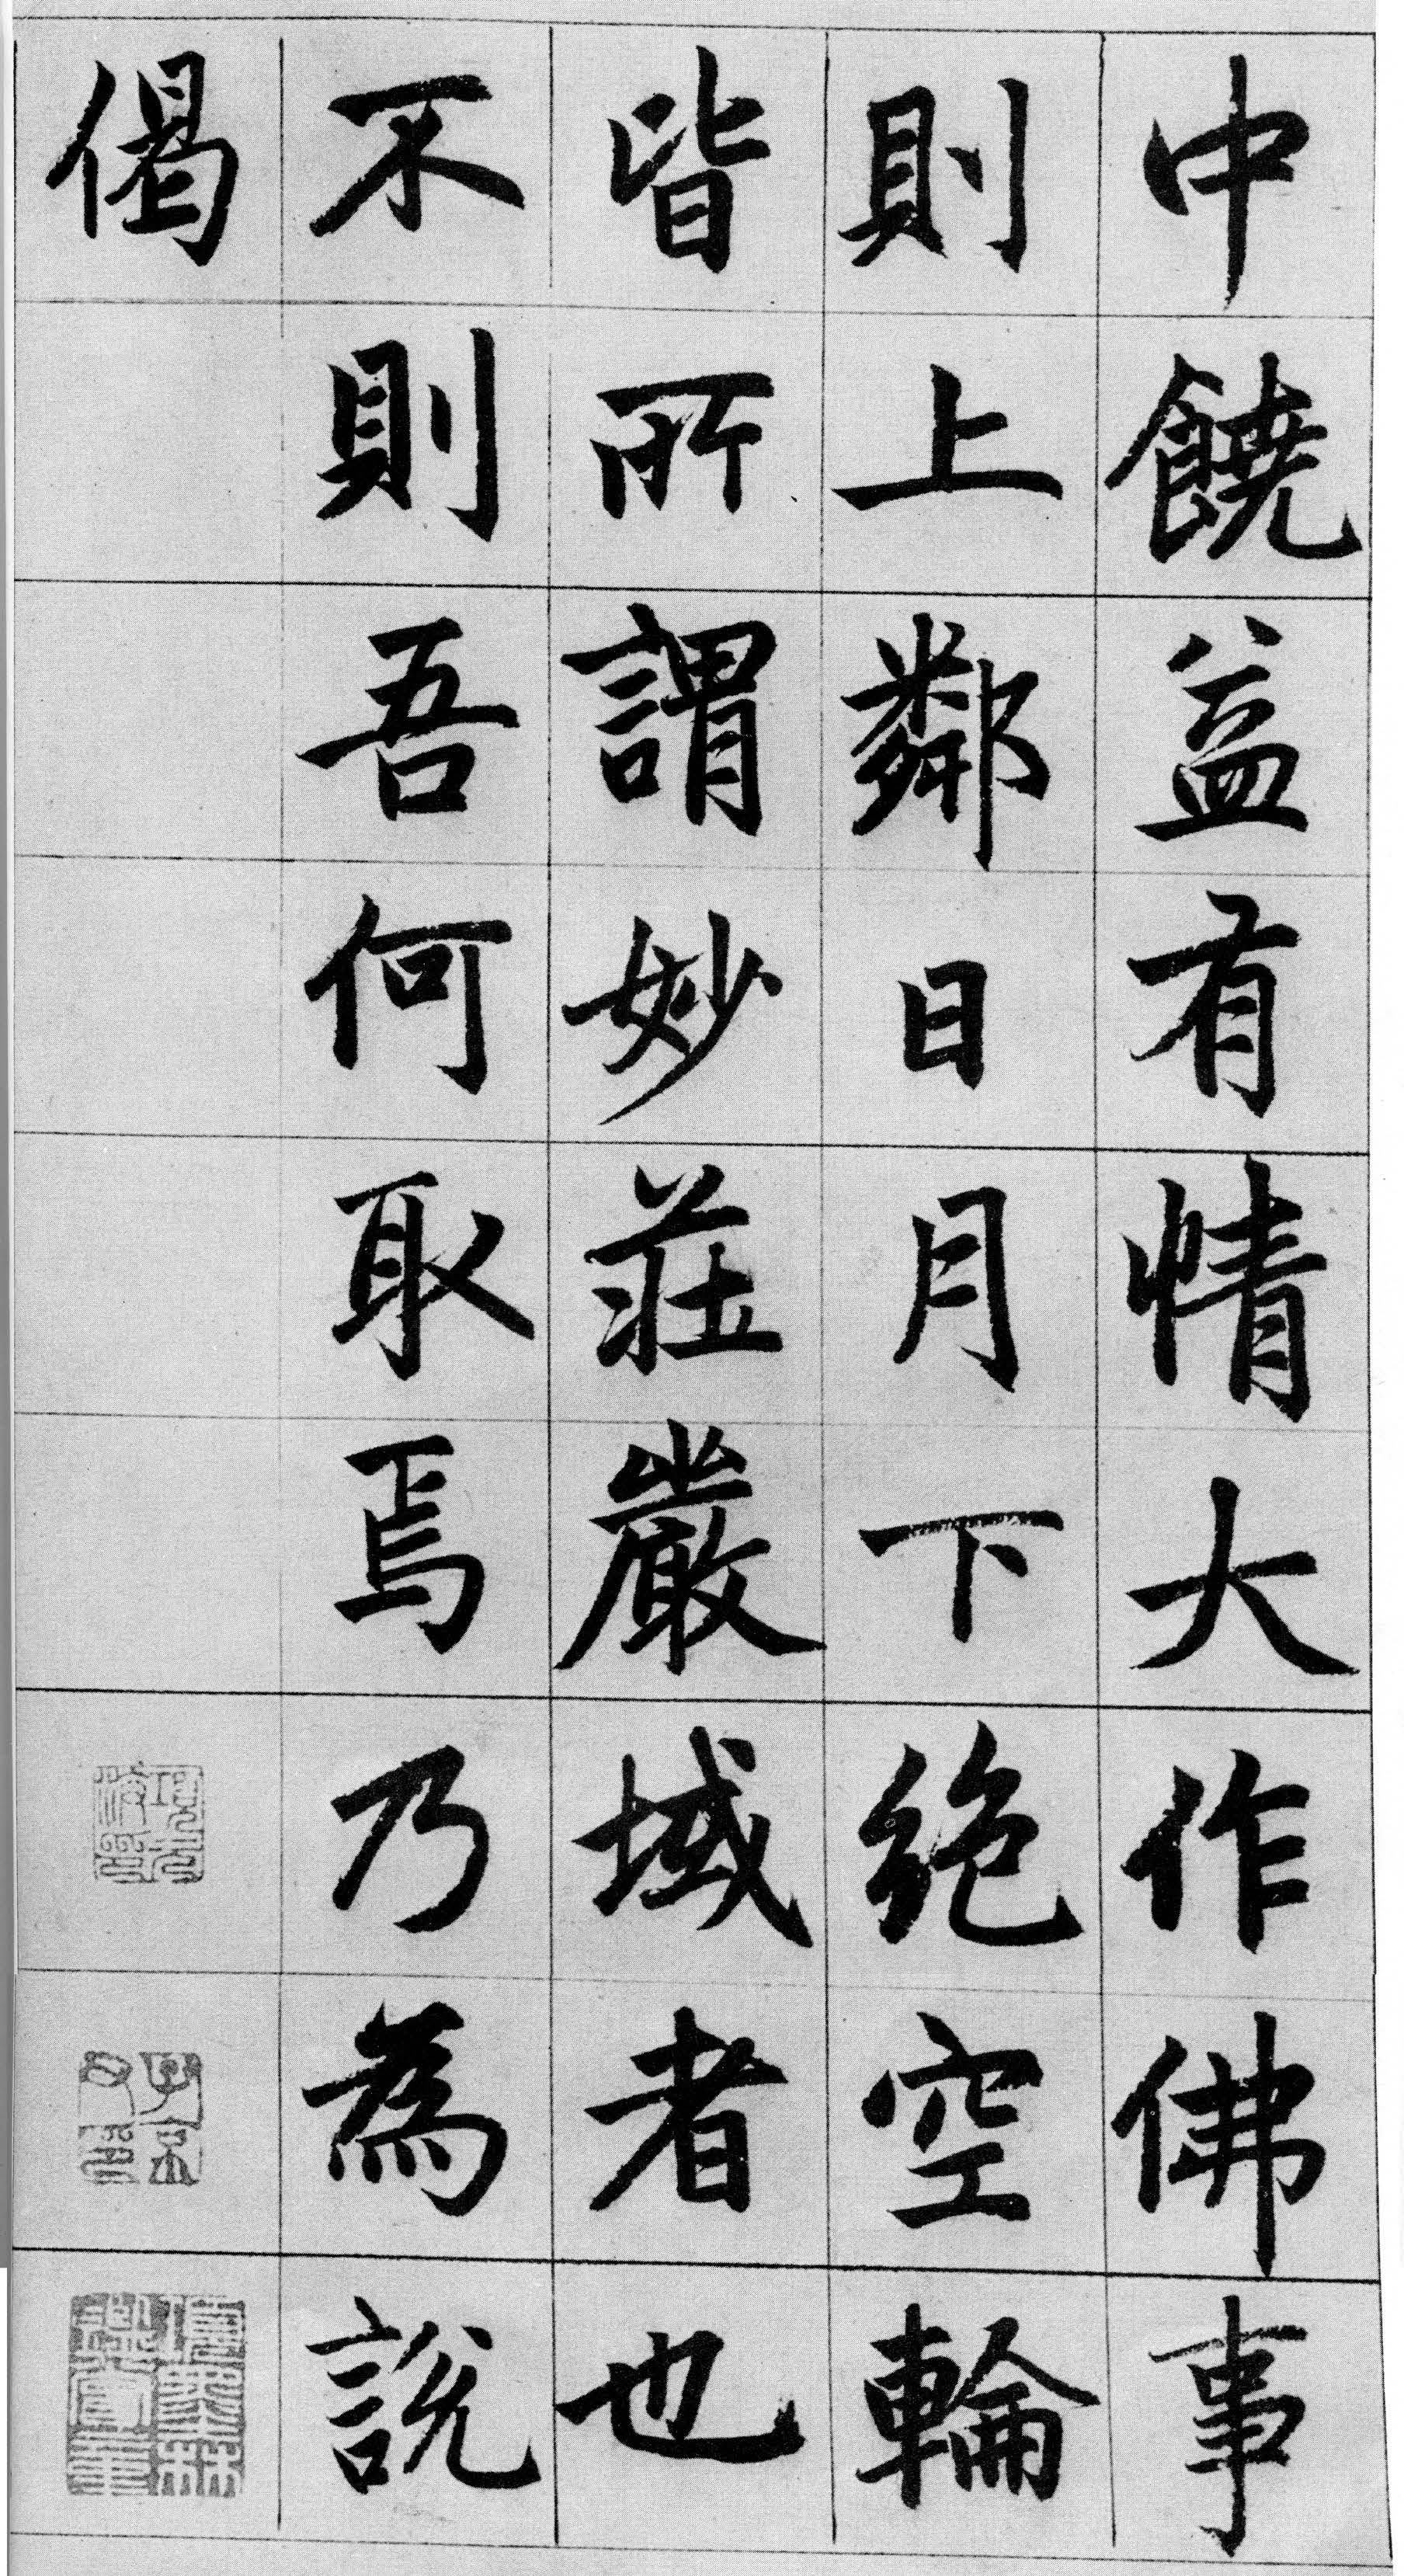 中饒益有情大作佛事
則上鄰日月下絶空輪
皆所謂妙莊嚴域者也
不則吾何取焉乃為說
偈